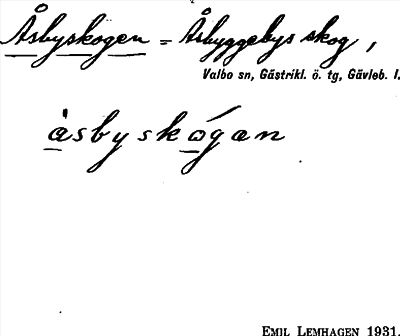 Åsbyskogen = Åsbyggebys skog,
Valbo sn, Gästrikl. ö. tg, Gävleb. l.
àsbyskógan
EMIL LEMHAGEN 1931.